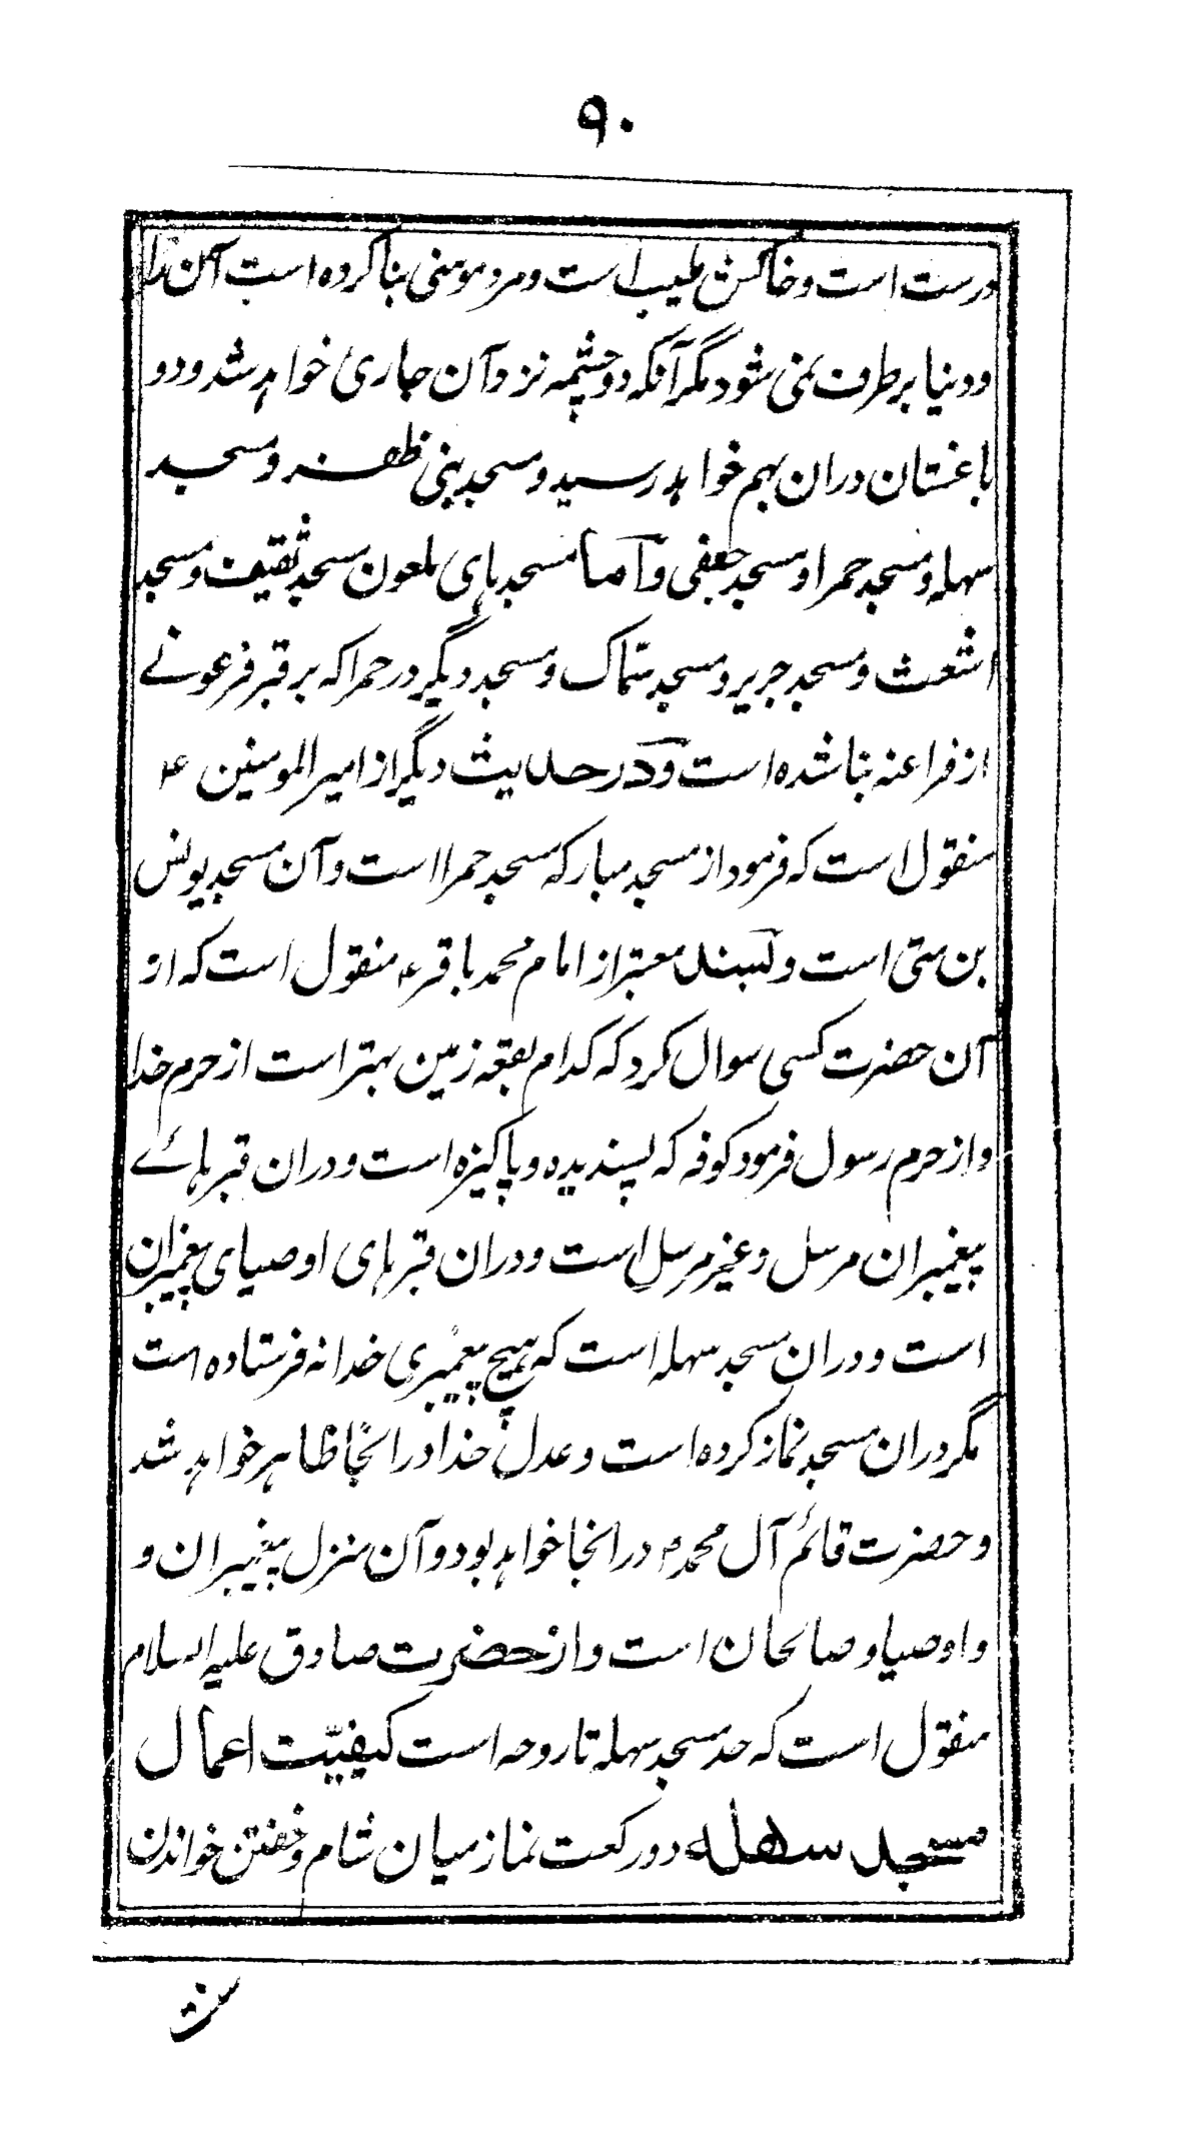 ۹۰
درست است و خاکش طیب است و مرد مومنی بنا کرده است آن را
و دنیا برطرف نمی شود مگر آنکه دو چشمه نزد آن جاری خواهد شد و دو
باغستان دران بهم خواهد رسید و مسجد بنی ظفر و مسجد
سهله و مسجد حمرا و مسجد جعفی و اما مسجد های ملعون مسجد ثقیف و مسجد
اشعث و مسجد جریر و مسجد سماک و مسجد دیگر در حمرا که بر قبر فرعونے
از فراعنه بنا شده است و در حدیث دیگر از امیر المومنین ع
منقول است که فرمود از مسجد مبارکه مسجد حمرا است و آن مسجد یونس
بن متی است و بسند معتبر از امام محمد باقر ع منقول است که از
آن حضرت کسی سوال کرد که کدام بقعه زمین بهتر است از حرم خدا
و از حرم رسول فرمود کوفه که پسندیده و پاکیزه است و دران قبرهائے
پیغمبران مرسل و غیر مرسل است و دران قبرهای اوصیای پیغمبران
است و دران مسجد سهله است که هیچ پیغمبری خدا نه فرستاده است
مگر دران مسجد نماز کرده است و عدل خدا در انجا ظاهر خواهد شد
و حضرت قائم آل محمد در انجا خواهد بود و آن منزل پیغمبران و
و اوصیا و صالحان است و از حضرت صادق علیه السلام
منقول است که حد مسجد سهله تا روحه است کیفیّت اعمال
مسجد سهله دو رکعت نماز میان شام و خفتن خواندن
سنت